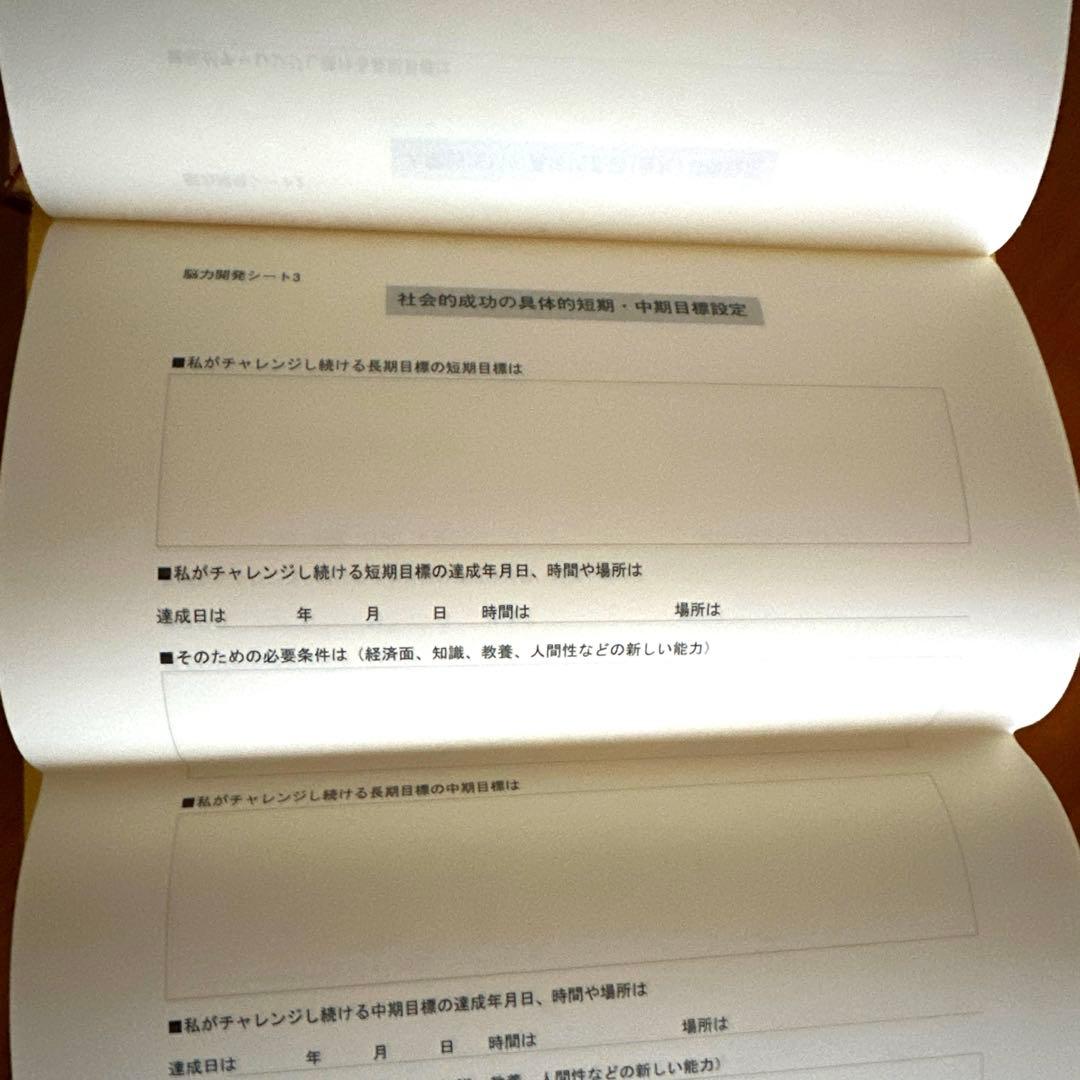 脳力開発シート3
社会的成功の具体的短期・中期目標設定
■私がチャレンジし続ける長期目標の短期目標は
■私がチャレンジし続ける短期目標の達成年月日、時間や場所は
達成日は 年 月 日 時間は 場所は
■そのための必要条件は（経済面、知識、教養、人間性などの新しい能力）
■私がチャレンジし続ける長期目標の中期目標は
■私がチャレンジし続ける中期目標の達成年月日、時間や場所は
達成日は 年 月 日 時間は 場所は
、教養、人間性などの新しい能力）